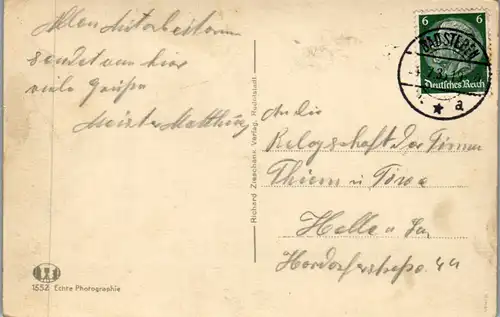 Allen Mitarbeitern
sendet von hier
viele Grüße
Meister Matthus
6 6
Deutsches Reich
BAD STEBEN
a
An die
Belegschaft der Firma
Thiem u. Töwe
Halle a. Sa.
Hordorferstraße 44
Richard Zieschank, Verlag, Rudolstadt
1552 Echte Photographie